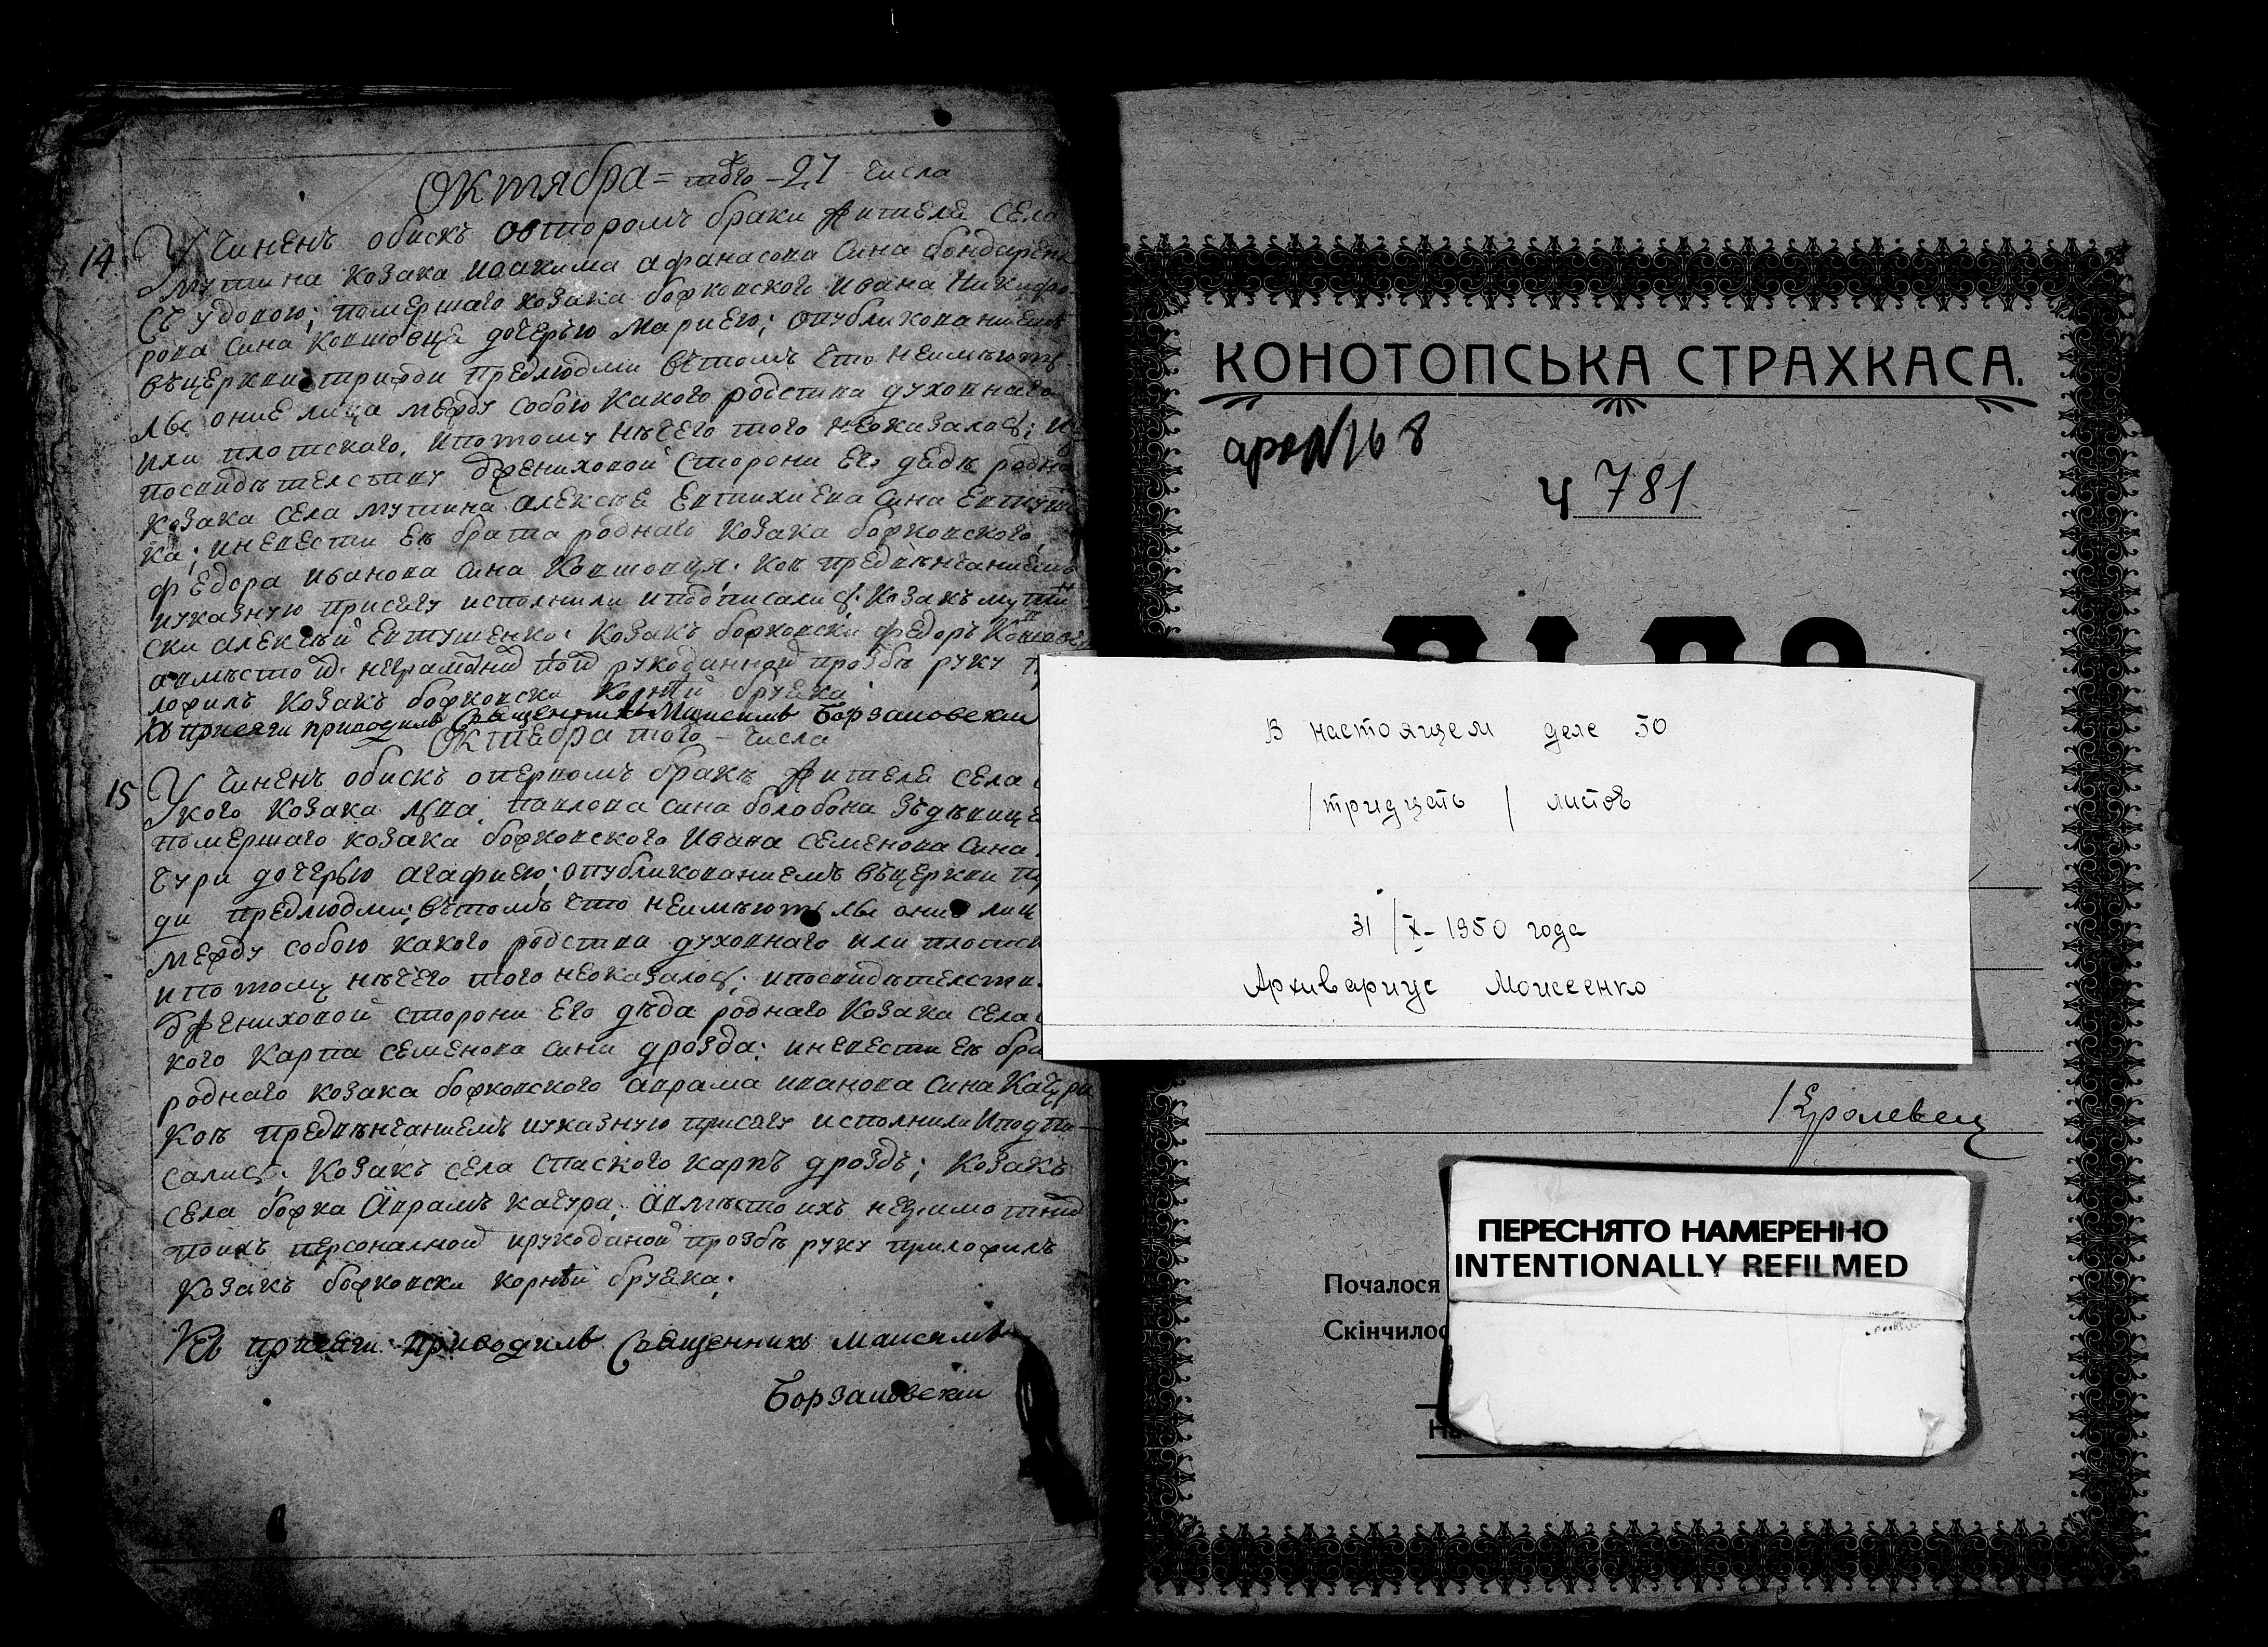 Октября = того – 27 – числа
14 Учиненъ обискъ овторомъ браки жителя Села
Мутина козака иоакима афанасова сина бондарен
Съ удовою; помершаго козака божковского ивана Никифо
рова сина Ковшовця дочерью Мариею; опубликованиемъ
въцеркви трижди предлюдми вътомъ что неимѣютъ
лы оние лица между собою какого родства духовнаго
или плотского, ипотому нѣчего того неоказалось; и
посвидѣтелству зжениховой сторони его дядѣ родно
козака села мутина алексѣя евтихиева сина Евтуш
ка; иневести еѣ брата роднаго козака божковского,
федора иванова сина Ковшовця. Кои предвѣнчаниемъ
иуказную присягу исполнили иподписались; козакъ мути
ски алексѣй евтушенко; козакъ божковски федоръ Ковшове
авмѣсто неграмотнид рукоданной прозбѣ руку
ложилъ козакъ божковски корнѣй бруяка
Къ присяги приводилъ Священникъ Максимъ Борзаковскии
Октебра того – числа
15 Учиненъ обискъ опервомъ бракѣ жителя села
кого козака лва, павлова сина болобона зъдѣвице
помершаго козака божковского Ивана семенова сина
чури дочерью агафиею; опубликованиемъ въцеркви
ди предлюдми; вътомъ что неимѣютъ лы оние лиц
между собою какого родства духовнаго или плотск
ипотому нѣчего того неоказалось; ипосвидѣтелству
зжениховой сторони его дѣда роднаго козака села
кого карпа семенова сина дрозда; иневести еѣ бра
роднаго козака божковского аврама иванова сина Качури
Кои предвѣнчаниемъ иуказную присягу исполнили Иподпи-
сались; Козакъ села спаского карпъ дроздъ; Козакъ
села божка Аврамъ качура; Авмѣсто ихъ неграмотнид
поихъ персоналной ирукоданой прозбѣ руку приложилъ
козакъ божковски корнѣй бруяка;
Къ присяги приводилъ Священникъ Максимъ
Борзаковскіи
КОНОТОПСЬКА СТРАХКАСА.
арх №168
Ч 781
В настоящем деле 30
/тридцать/ листов
31/X-1950 года
Архивариус Моисеенко
Кролевец
ПЕРЕСНЯТО НАМЕРЕННО
INTENTIONALLY REFILMED
Почалося
Скінчилос